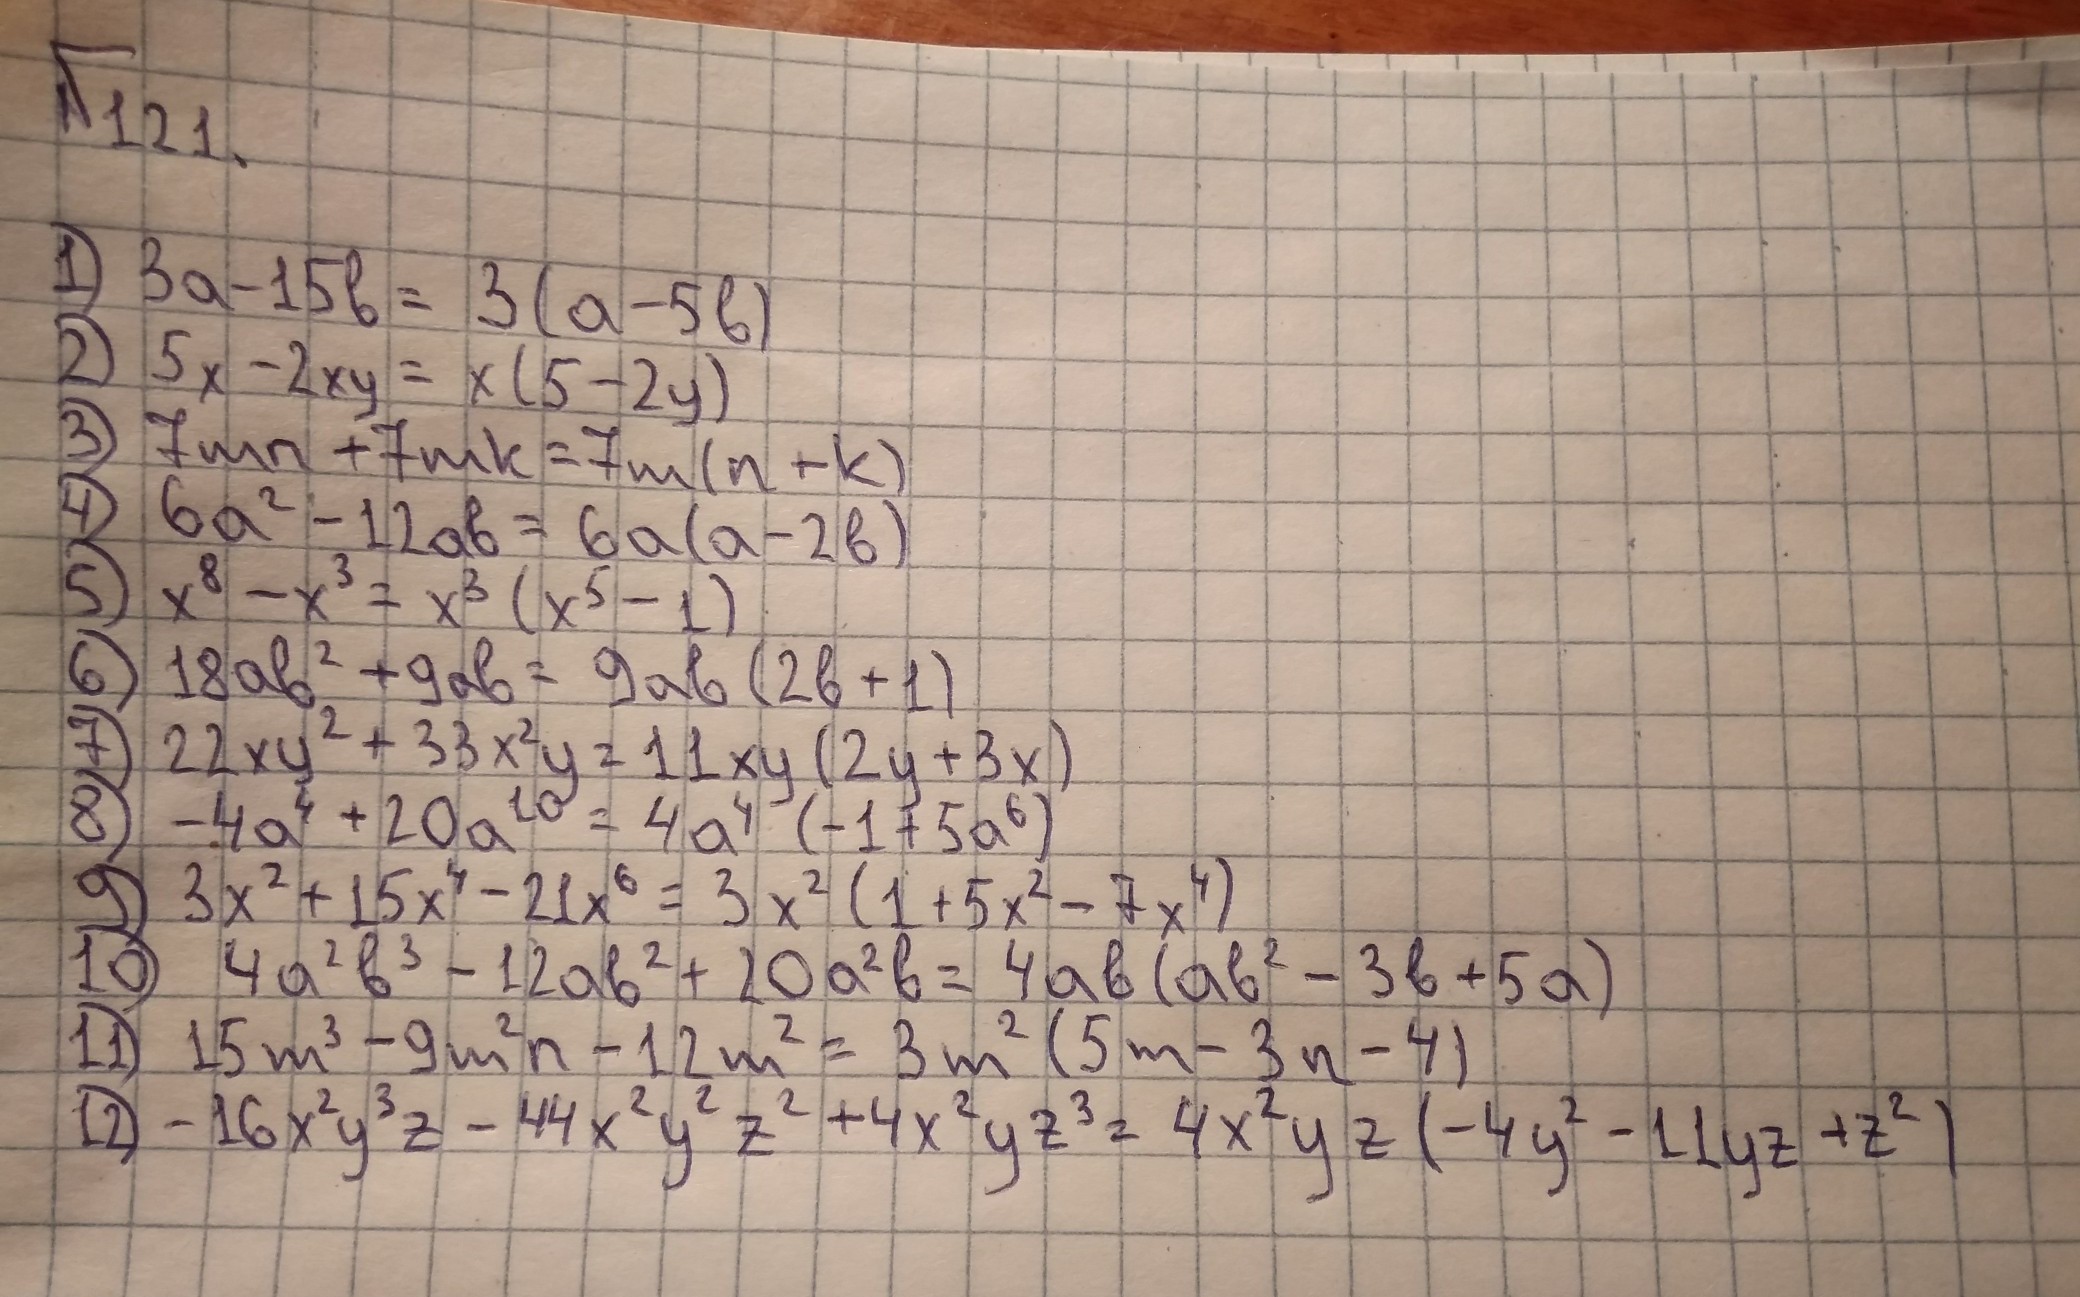 121.
1) 3a-15b = 3(a-5b)
2) 5x-2xy = x(5-2y)
3) 7mn+7mk=7m(n+k)
4) 6a²-12ab = 6a(a-2b)
5) x⁸-x³ = x³(x⁵-1)
6) 18ab²+9ab = 9ab(2b+1)
7) 22xy²+33x²y=11xy(2y+3x)
8) -4a⁴+20a¹⁰ = 4a⁴(-1+5a⁶)
9) 3x²+15x⁴-21x⁶ = 3x²(1+5x²-7x⁴)
10) 4a²b³-12ab²+20a²b = 4ab(ab²-3b+5a)
11) 15m³-9m²n-12m² = 3m²(5m-3n-4)
12) -16x²y³z-44x²y²z²+4x²yz³ = 4x²yz(-4y²-11yz+z²)